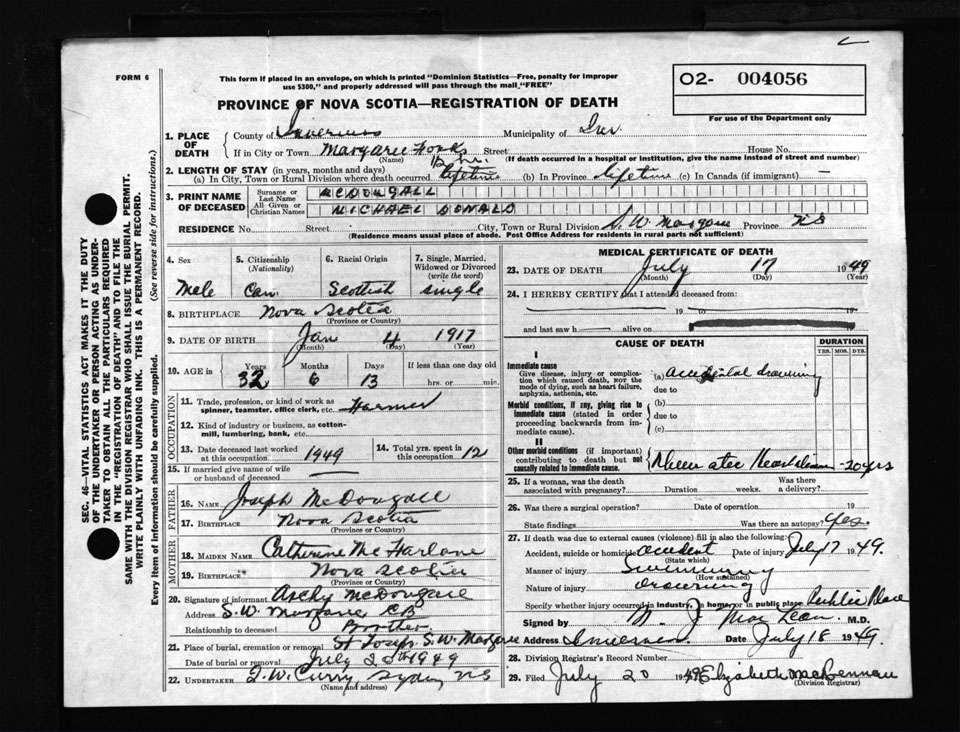 FORM 6
This form if placed in an envelope, on which is printed "Dominion Statistics—Free, penalty for improper
use $300," and properly addressed will pass through the mail "FREE"
O2- 004056
For use of the Department only
PROVINCE OF NOVA SCOTIA—REGISTRATION OF DEATH
1. PLACE OF DEATH
County of Inverness Municipality of Inv.
If in City or Town Margaree Forks Street House No.
(Name) (If death occurred in a hospital or institution, give the name instead of street and number)
12 hr.
2. LENGTH OF STAY (in years, months and days)
(a) In City, Town or Rural Division where death occurred lifetime (b) In Province lifetime (c) In Canada (if immigrant) —
3. PRINT NAME OF DECEASED
Surname or Last Name MCDOUGALL
All Given or Christian Names MICHAEL DONALD
RESIDENCE No. Street City, Town or Rural Division S.W. Margaree Province NS
(Residence means usual place of abode. Post Office Address for residents in rural parts not sufficient)
4. Sex 5. Citizenship (Nationality) 6. Racial Origin 7. Single, Married, Widowed or Divorced (write the word)
Male Can. Scottish single
8. BIRTHPLACE Nova Scotia
(Province or Country)
9. DATE OF BIRTH Jan 4 1917
(Month) (Day) (Year)
10. AGE in Years Months Days If less than one day old
32 6 13 hrs. or min.
OCCUPATION
11. Trade, profession, or kind of work as spinner, teamster, office clerk, etc. Farmer
12. Kind of industry or business, as cotton-mill, lumbering, bank, etc.
13. Date deceased last worked at this occupation 1949 14. Total yrs. spent in this occupation 12
15. If married give name of wife or husband of deceased
FATHER
16. NAME Joseph McDougall
17. BIRTHPLACE Nova Scotia
(Province or Country)
MOTHER
18. MAIDEN NAME Catherine McFarlane
19. BIRTHPLACE Nova Scotia
(Province or Country)
20. Signature of informant Archy McDougall
Address S.W. Margaree CB
Relationship to deceased Brother
21. Place of burial, cremation or removal St Joseph S.W. Margaree
Date of burial or removal July 20th 1949
22. UNDERTAKER T.W. Curry, Sydney NS
(Name and address)
MEDICAL CERTIFICATE OF DEATH
23. DATE OF DEATH July 17 1949
(Month) (Day) (Year)
24. I HEREBY CERTIFY that I attended deceased from:
19 to 19
and last saw h alive on
CAUSE OF DEATH
DURATION
YRS. MOS. DYS.
I
Immediate cause
Give disease, injury or complication which caused death, NOT the mode of dying, such as heart failure, asphyxia, asthenia, etc.
(a) accidental drowning
due to
Morbid conditions, if any, giving rise to immediate cause (stated in order proceeding backwards from immediate cause).
(b)
due to
(c)
II
Other morbid conditions (if important) contributing to death but not causally related to immediate cause.
Rheumatic Heart disease - 20 yrs
25. If a woman, was the death associated with pregnancy? Duration weeks Was there a delivery?
26. Was there a surgical operation? Date of operation 19
State findings Was there an autopsy? Yes.
27. If death was due to external causes (violence) fill in also the following:
Accident, suicide or homicide accident Date of injury July 17 1949.
(State which)
Manner of injury Swimming
(How sustained)
Nature of injury Drowning
Specify whether injury occurred in industry, in home, or in public place Public Place
Signed by J MacLean M.D.
Address Inverness Date July 18 1949.
28. Division Registrar's Record Number
29. Filed July 20 1949 Elizabeth MacLennan
(Division Registrar)
SEC. 46—VITAL STATISTICS ACT MAKES IT THE DUTY
OF THE UNDERTAKER OR PERSON ACTING AS UNDER-
TAKER TO OBTAIN ALL THE PARTICULARS REQUIRED
IN THE "REGISTRATION OF DEATH" AND TO FILE THE
SAME WITH THE DIVISION REGISTRAR WHO SHALL ISSUE THE BURIAL PERMIT.
WRITE PLAINLY WITH UNFADING INK. THIS IS A PERMANENT RECORD.
Every item of information should be carefully supplied. (See reverse side for instructions.)